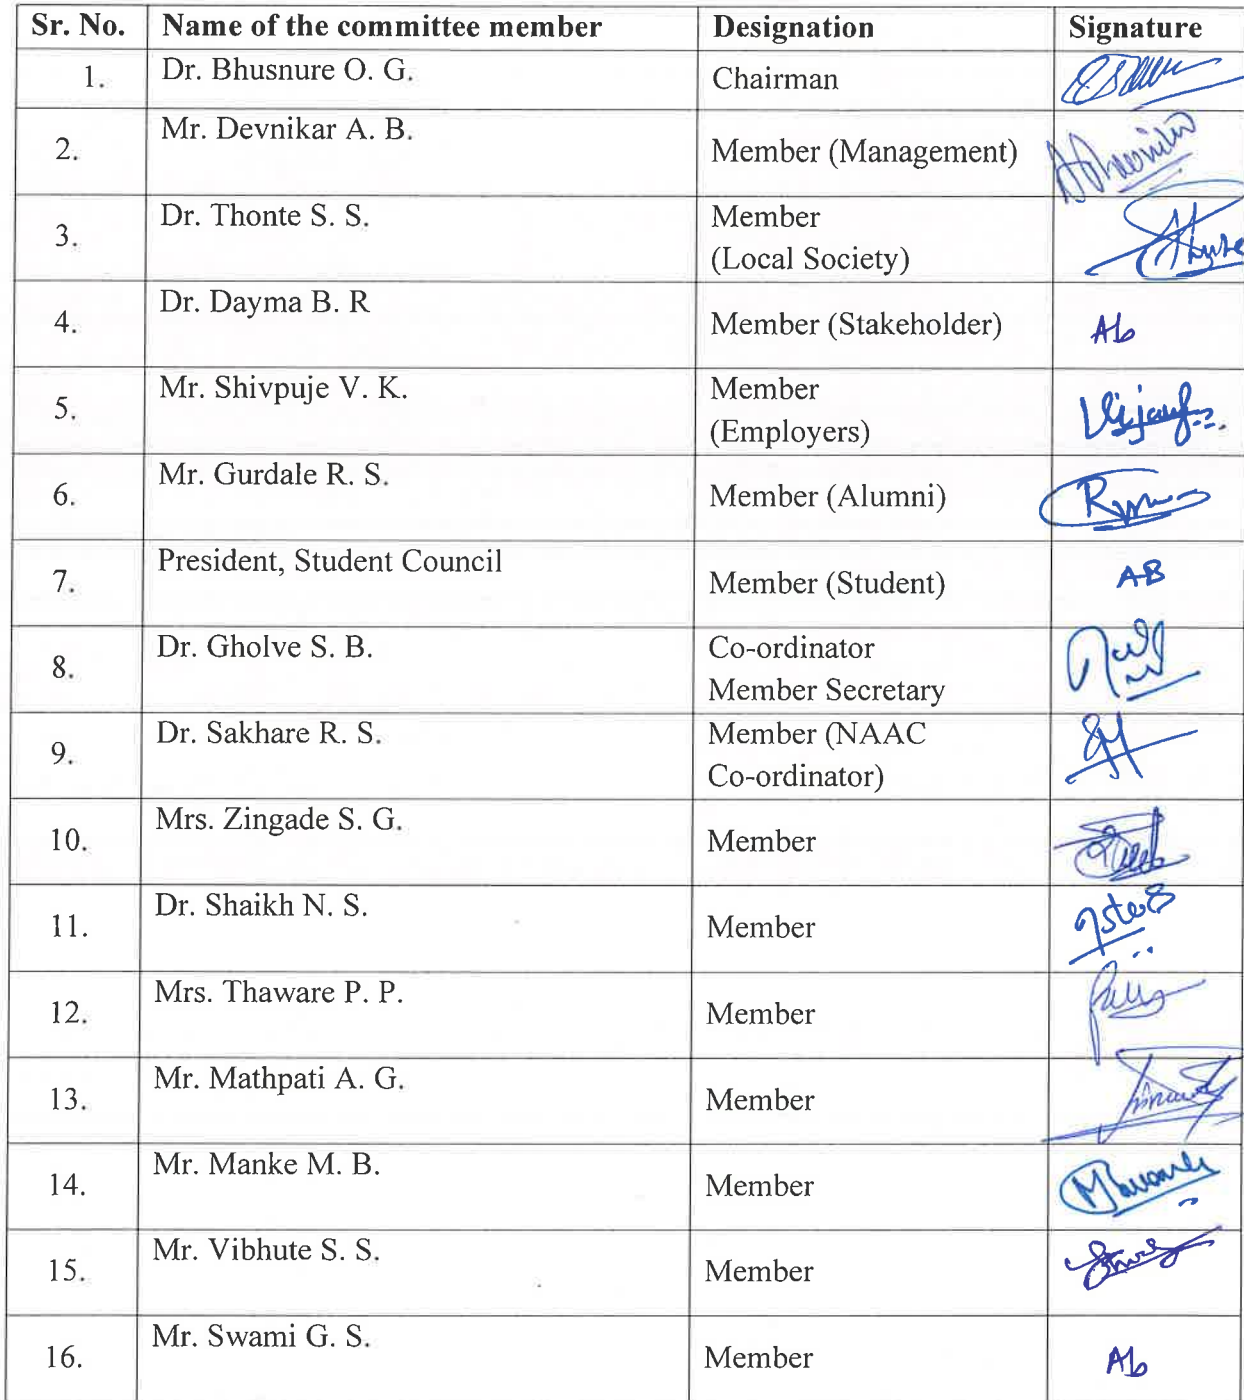 Sr. No. Name of the committee member Designation Signature
1. Dr. Bhusnure O. G. Chairman
2. Mr. Devnikar A. B. Member (Management)
3. Dr. Thonte S. S. Member
(Local Society)
4. Dr. Dayma B. R Member (Stakeholder) Ab
5. Mr. Shivpuje V. K. Member
(Employers)
6. Mr. Gurdale R. S. Member (Alumni)
7. President, Student Council Member (Student) AB
8. Dr. Gholve S. B. Co-ordinator
Member Secretary
9. Dr. Sakhare R. S. Member (NAAC
Co-ordinator)
10. Mrs. Zingade S. G. Member
11. Dr. Shaikh N. S. Member
12. Mrs. Thaware P. P. Member
13. Mr. Mathpati A. G. Member
14. Mr. Manke M. B. Member
15. Mr. Vibhute S. S. Member
16. Mr. Swami G. S. Member Ab